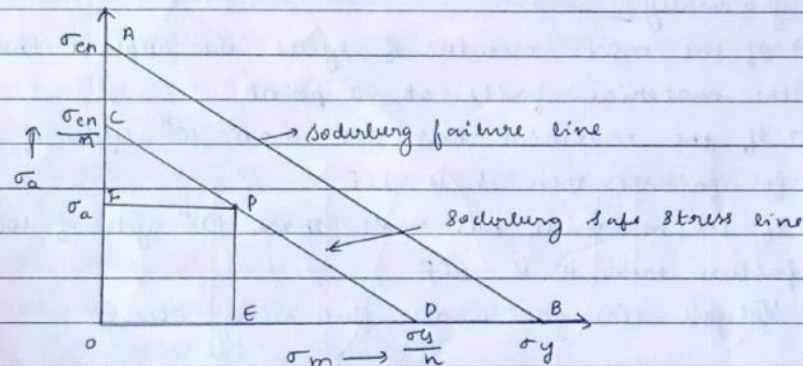 σen A
σen/n C
soderberg failure line
↑
σa
σa F P
Soderberg safe stress line
O E D B
σm → σy/n σy